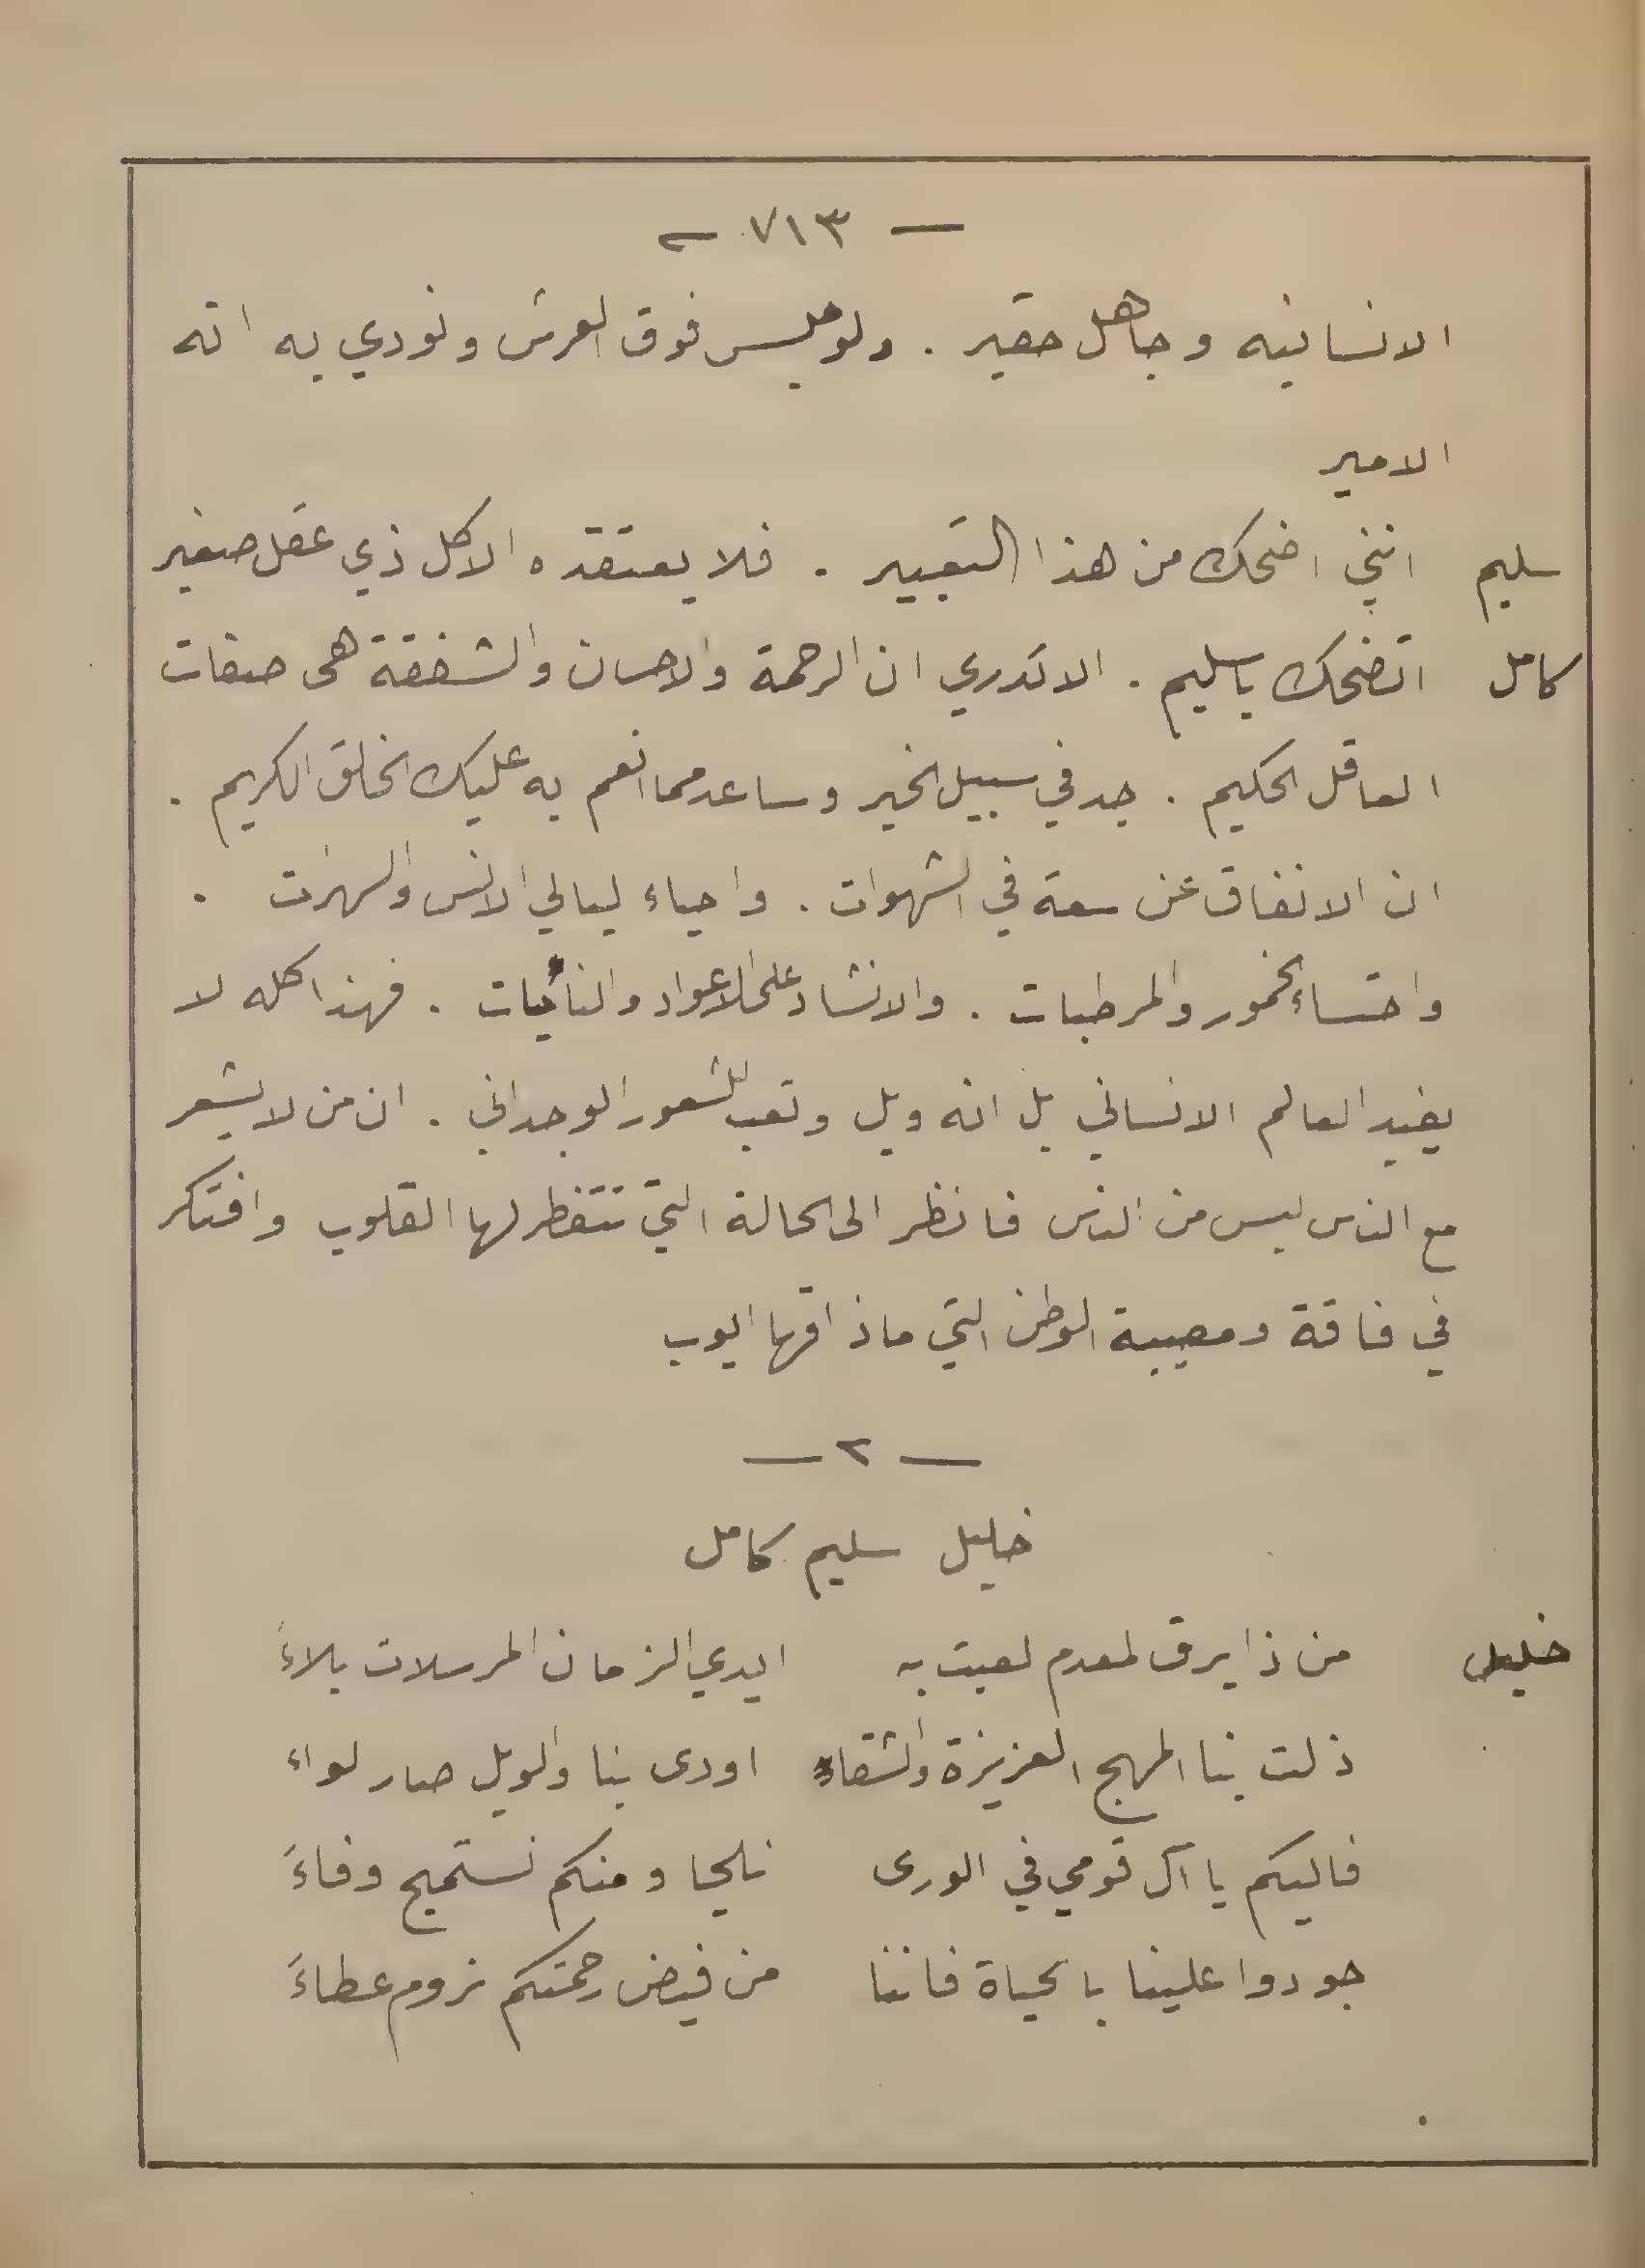 — ٧١٣ —
الانسانيه وجاهل حقير . ولو جلس فوق العرش ونودي به انه
الامير
سليم انني اضحك من هذا التعبير . فلا يعتقده الا كل ذي عقل صغير
كامل اتضحك يا سليم . الا تدري ان الرحمة والاحسان والشفقة هى صفات
العاقل الحكيم . جد في سبيل الخير وساعد مما انعم به عليك الخالق الكريم .
ان الانفاق عن سعة في الشهوات . واحياء ليالي الانس والسهرات .
واحتساء الخمور والمرطبات . والانشاد على الاعواد والنايات . فهذا كله لا
يفيد العالم الانساني بل انه ويل وتعب للشعور الوجداني . ان من لا يشعر
مع الناس ليس من الناس فانظر الى الحالة التي تتفطر لها القلوب وافتكر
في فاقة ومصيبة الوطن التي ما ذاقها ايوب
— ٢ —
خليل سليم كامل
خليل من ذا يرق لمعدم لعبت به ايدي الزمان المرسلات بلاءَ
ذلت بنا المهج العزيزة والشقاء اودى بنا والويل صار لواء
فاليكم يا آل قومي في الورى نلجا ومنكم نستميح وفاءَ
جودوا علينا بالحياة فاننا من فيض رحمتكم نروم عطاءَ